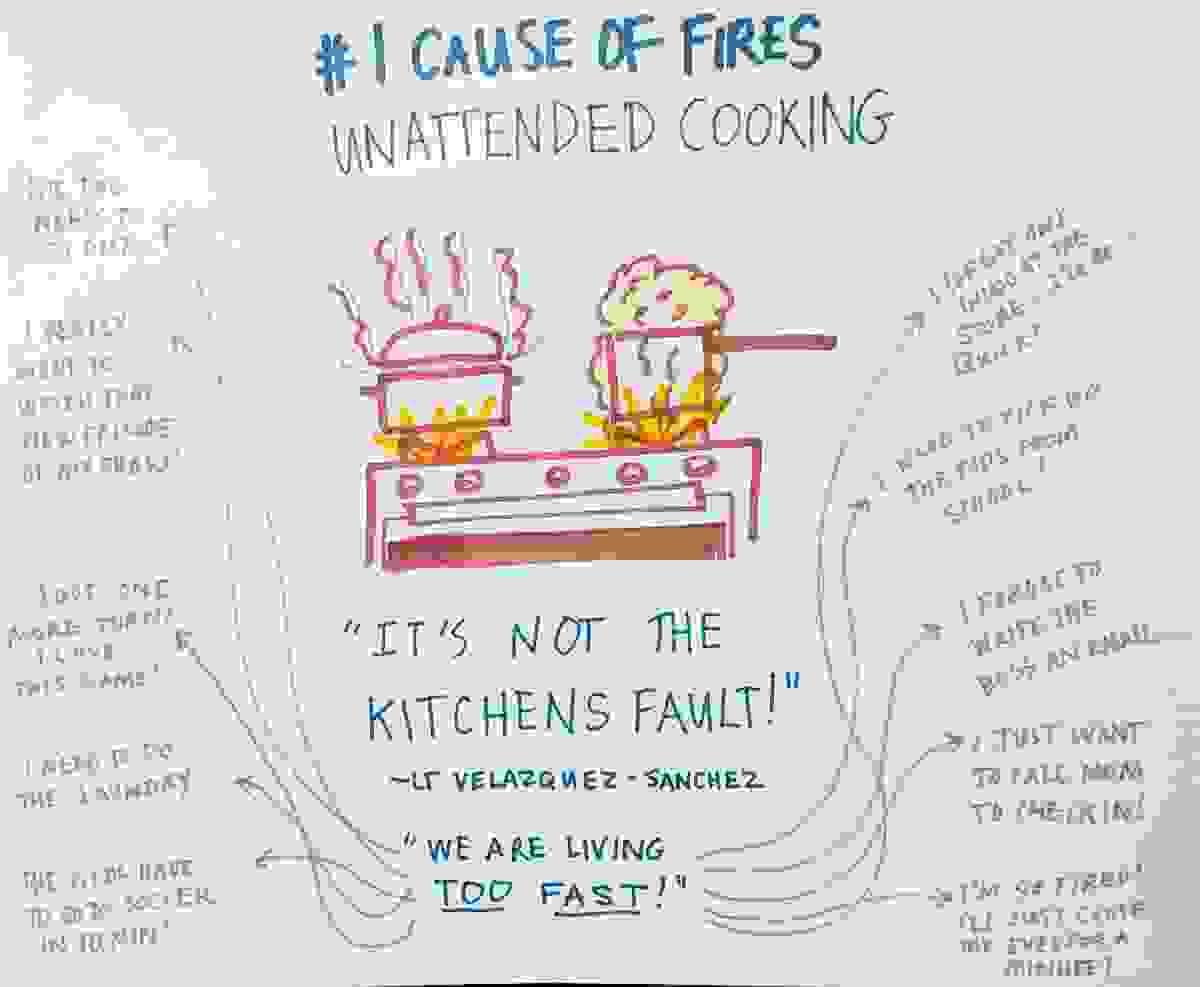 #1 CAUSE OF FIRES
UNATTENDED COOKING
I REALLY
WANT TO
WATCH THAT
NEW EPISODE
OF MY SHOW!
JUST ONE
MORE TURN!
I LOVE
THIS GAME!
I NEED TO DO
THE LAUNDRY
THE KIDS HAVE
TO GO TO SOCCER
IN 10 MIN!
I FORGOT ONE
THING AT THE
STORE. I'LL BE
QUICK!
I NEED TO PICK UP
THE KIDS FROM
SCHOOL!
I FORGOT TO
WRITE THE
BOSS AN EMAIL
I JUST WANT
TO CALL MOM
TO CHECK IN!
I'M SO TIRED!
I'LL JUST CLOSE
MY EYES FOR A
MINUTE!
"IT'S NOT THE
KITCHENS FAULT!"
~LT VELAZQUEZ-SANCHEZ
"WE ARE LIVING
TOO FAST!"